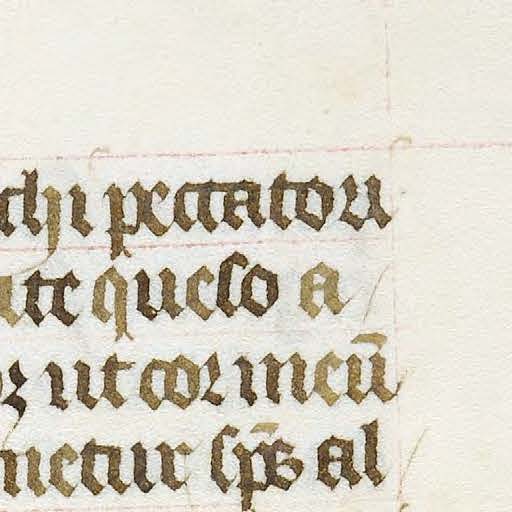 chi peccatori
te queso a
ut cor meū
netur sp̄s al